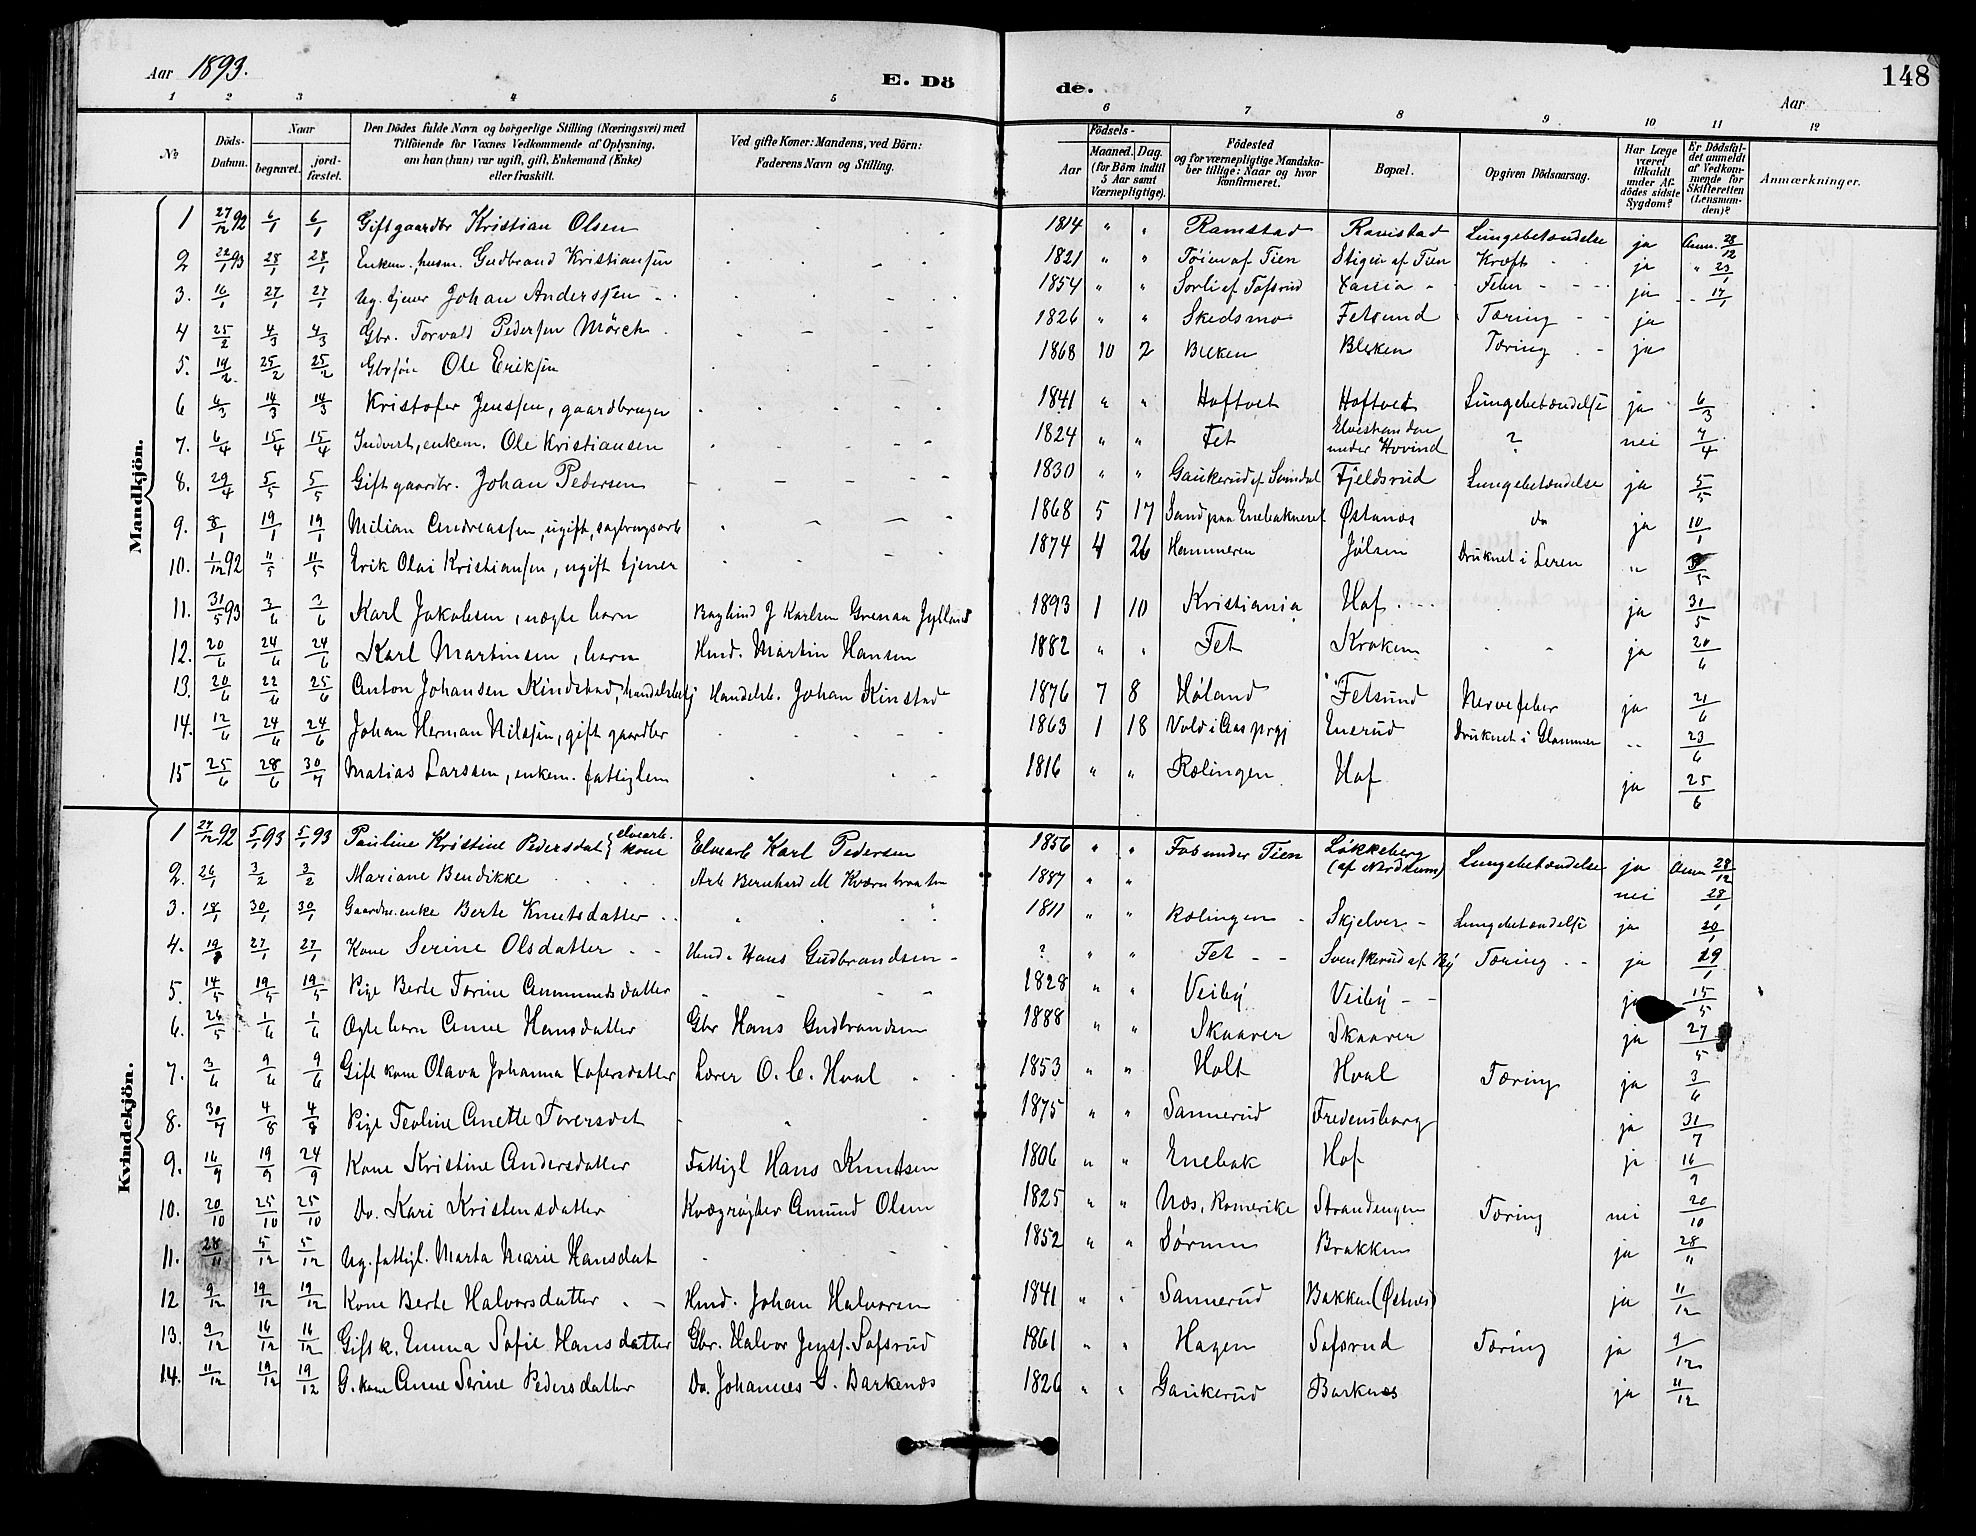 Aar 1893.
E. Dö
de.
Aar
148
1 2 3 4 5 6 7 8 9 10 11 12
No
Döds-Datum.
Naar
begravet.
jordfæstet.
Den Dödes fulde Navn og borgerlige Stilling (Næringsvei) med
Tilföiende for Voxnes Vedkommende af Oplysning,
om han (hun) var ugift, gift, Enkemand (Enke)
eller fraskilt.
Ved gifte Koner: Mandens, ved Börn:
Faderens Navn og Stilling.
Födsels-
Aar
Maaned. Dag.
(for Börn indtil
5 Aar samt
Værnepligtige).
Födested
og for værnepligtige Mandska-
ber tillige: Naar og hvor
konfirmeret.
Bopæl.
Opgiven Dödsaarsag.
Har Læge
været
tilkaldt
under Af-
dödes sidste
Sygdom?
Er Dödsfal-
det anmeldt
af Vedkom-
mende for
Skifteretten
(Lensman-
den)?
Anmærkninger.
Mandkjön.
1 27/12 92 6/1 6/1 Gift gaardbr Kristian Olsen 1814 " " Ramstad Ramstad Lungebetændelse ja Anm. 28/12
2 22/1 93 28/1 28/1 Enkem., husm. Gudbrand Kristiansen 1821 " " Tøien af Tien Stigen af Tien Kræft ja " 23/1
3. 16/1 27/1 27/1 Ug. tjener Johan Anderssen 1854 " " Sorli af Tofsrud Xania Feber ja 17/1
4 25/2 4/3 4/3 Gbr. Torvald Pedersen Mörch 1826 " " Skedsmo Fetsund Tæring ja
5. 14/2 25/2 25/2 Gbrsøn Ole Eriksen 1868 10 2 Bleken Bleken Tæring ja
6 6/3 14/3 14/3 Kristofer Jenssen, gaardbruger 1841 " " Hoftvet Hoftvet Lungebetændelse ja 6/3
7. 6/4 15/4 15/4 Indverts, enkem. Ole Kristiansen 1824 " " Fet Elvestranden under Hovind ? nei 7/4
8. 29/4 5/5 5/5 Gift gaardbr. Johan Pedersen 1830 " " Gaukerud af Svindal Fjeldsrud Lungebetændelse ja 5/5
9. 8/1 19/1 19/1 Milian Andreassen, ugift, sagbrugsarb 1868 5 17 Sand paa Enebakneset Østanes do ja 10/1
10. 1/12 92 11/5 11/5 Erik Olai Kristiansen, ugift tjener 1874 4 26 Hammeren Jølsen Druknet i Leren " 5
11. 31/5 93 3/6 3/6 Karl Jakobsen, uægte barn J Karlsen Grenaa Jylland 1893 1 10 Kristiania Hof ja 31/5
12. 20/6 24/6 24/6 Karl Martinsen, barn Hmd. Martin Hansen 1882 " " Fet Kraken ja 20/6
13. 20/6 22/6 25/6 Anton Johansen Kindstad, handelsbetj Handelsb. Johan Kinstad 1876 7 8 Høland Fetsund Nervefeber ja 21/6
14. 12/6 24/6 24/6 Johan Herman Nilssen, gift gaardbr 1863 1 18 Vold i Aas prgj Enerud Druknet i Glommen " 23/6
15 25/6 28/6 30/7 Matias Larssen, enkem. fattiglem 1816 " " Rælingen Hof ja 25/6
Kvindekjön.
1 27/12 92 5/1 93 5/1 93 Pauline Kristine Pedersdat { elvearb. kone Elvearb Karl Pedersen 1856 " " Fos under Tien Løkkeberg (af Nordrum) Lungebetændelse ja Anm 28/12
2. 26/1 3/2 3/2 Mariane Bendikke Arb Bernhard M Kværnbraaten 1887 " " nei 28/1
3. 18/1 30/1 30/1 Gaardm. enke Berte Knutsdatter 1811 " " Rælingen Skjelver Lungebetændelse ja 20/1
4. 19 27/1 27/1 Kone Serine Olsdatter Hmd. Hans Gudbrandsen ? " " Fet Svenskerud af By Tæring ja 19/1
5. 14/5 19/5 19/5 Pige Berte Torine Ammundsdatter 1828 " " Veiby Veiby ja 15/5
6. 26/5 1/6 1/6 Ægte barn Anne Hansdatter Gbr Hans Gudbrandsen 1888 " " Skaarer Skaarer ja 27/5
7. 3/6 9/6 9/6 Gift kone Olava Johanna Xofersdatter Lærer O. C. Hval 1853 " " Holt Hval Tæring ja 3/6
8. 30/7 4/8 4/8 Pige Teoline Anette Toversdat 1875 " " Sannerud Fredensborg ja 31/7
9. 16/9 19/9 24/9 Kone Kristine Andersdatter Fattigl Hans Knutsen 1806 " " Enebak Hof ja 16/9
10. 20/10 25/10 25/10 Do. Kari Kristensdatter Kvægrøgter Amund Olsen 1825 " " Næs, Romerike Strandengen Tæring nei 20/10
11. 28/11 5/12 5/12 Ug. fattigl. Marta Marie Hansdat 1852 " " Sørum Brakken ja 28/11
12 9/12 19/12 19/12 Kone Berte Halvorsdatter Hmd. Johan Halvorsen 1841 " " Sannerud Bakken (Østnes) ja 11/12
13. 9/12 16/12 16/12 Gift k. Emma Sofie Hansdatter Gbr. Halvor Jenss. Tofsrud 1861 " " Hagen Tofsrud Tæring ja 9/12
14. 11/12 19/12 19/12 G. kone Anne Serine Pedersdatter Do. Johannes G. Barkenæs 1826 " " Gaukerud Barknes ja 11/12